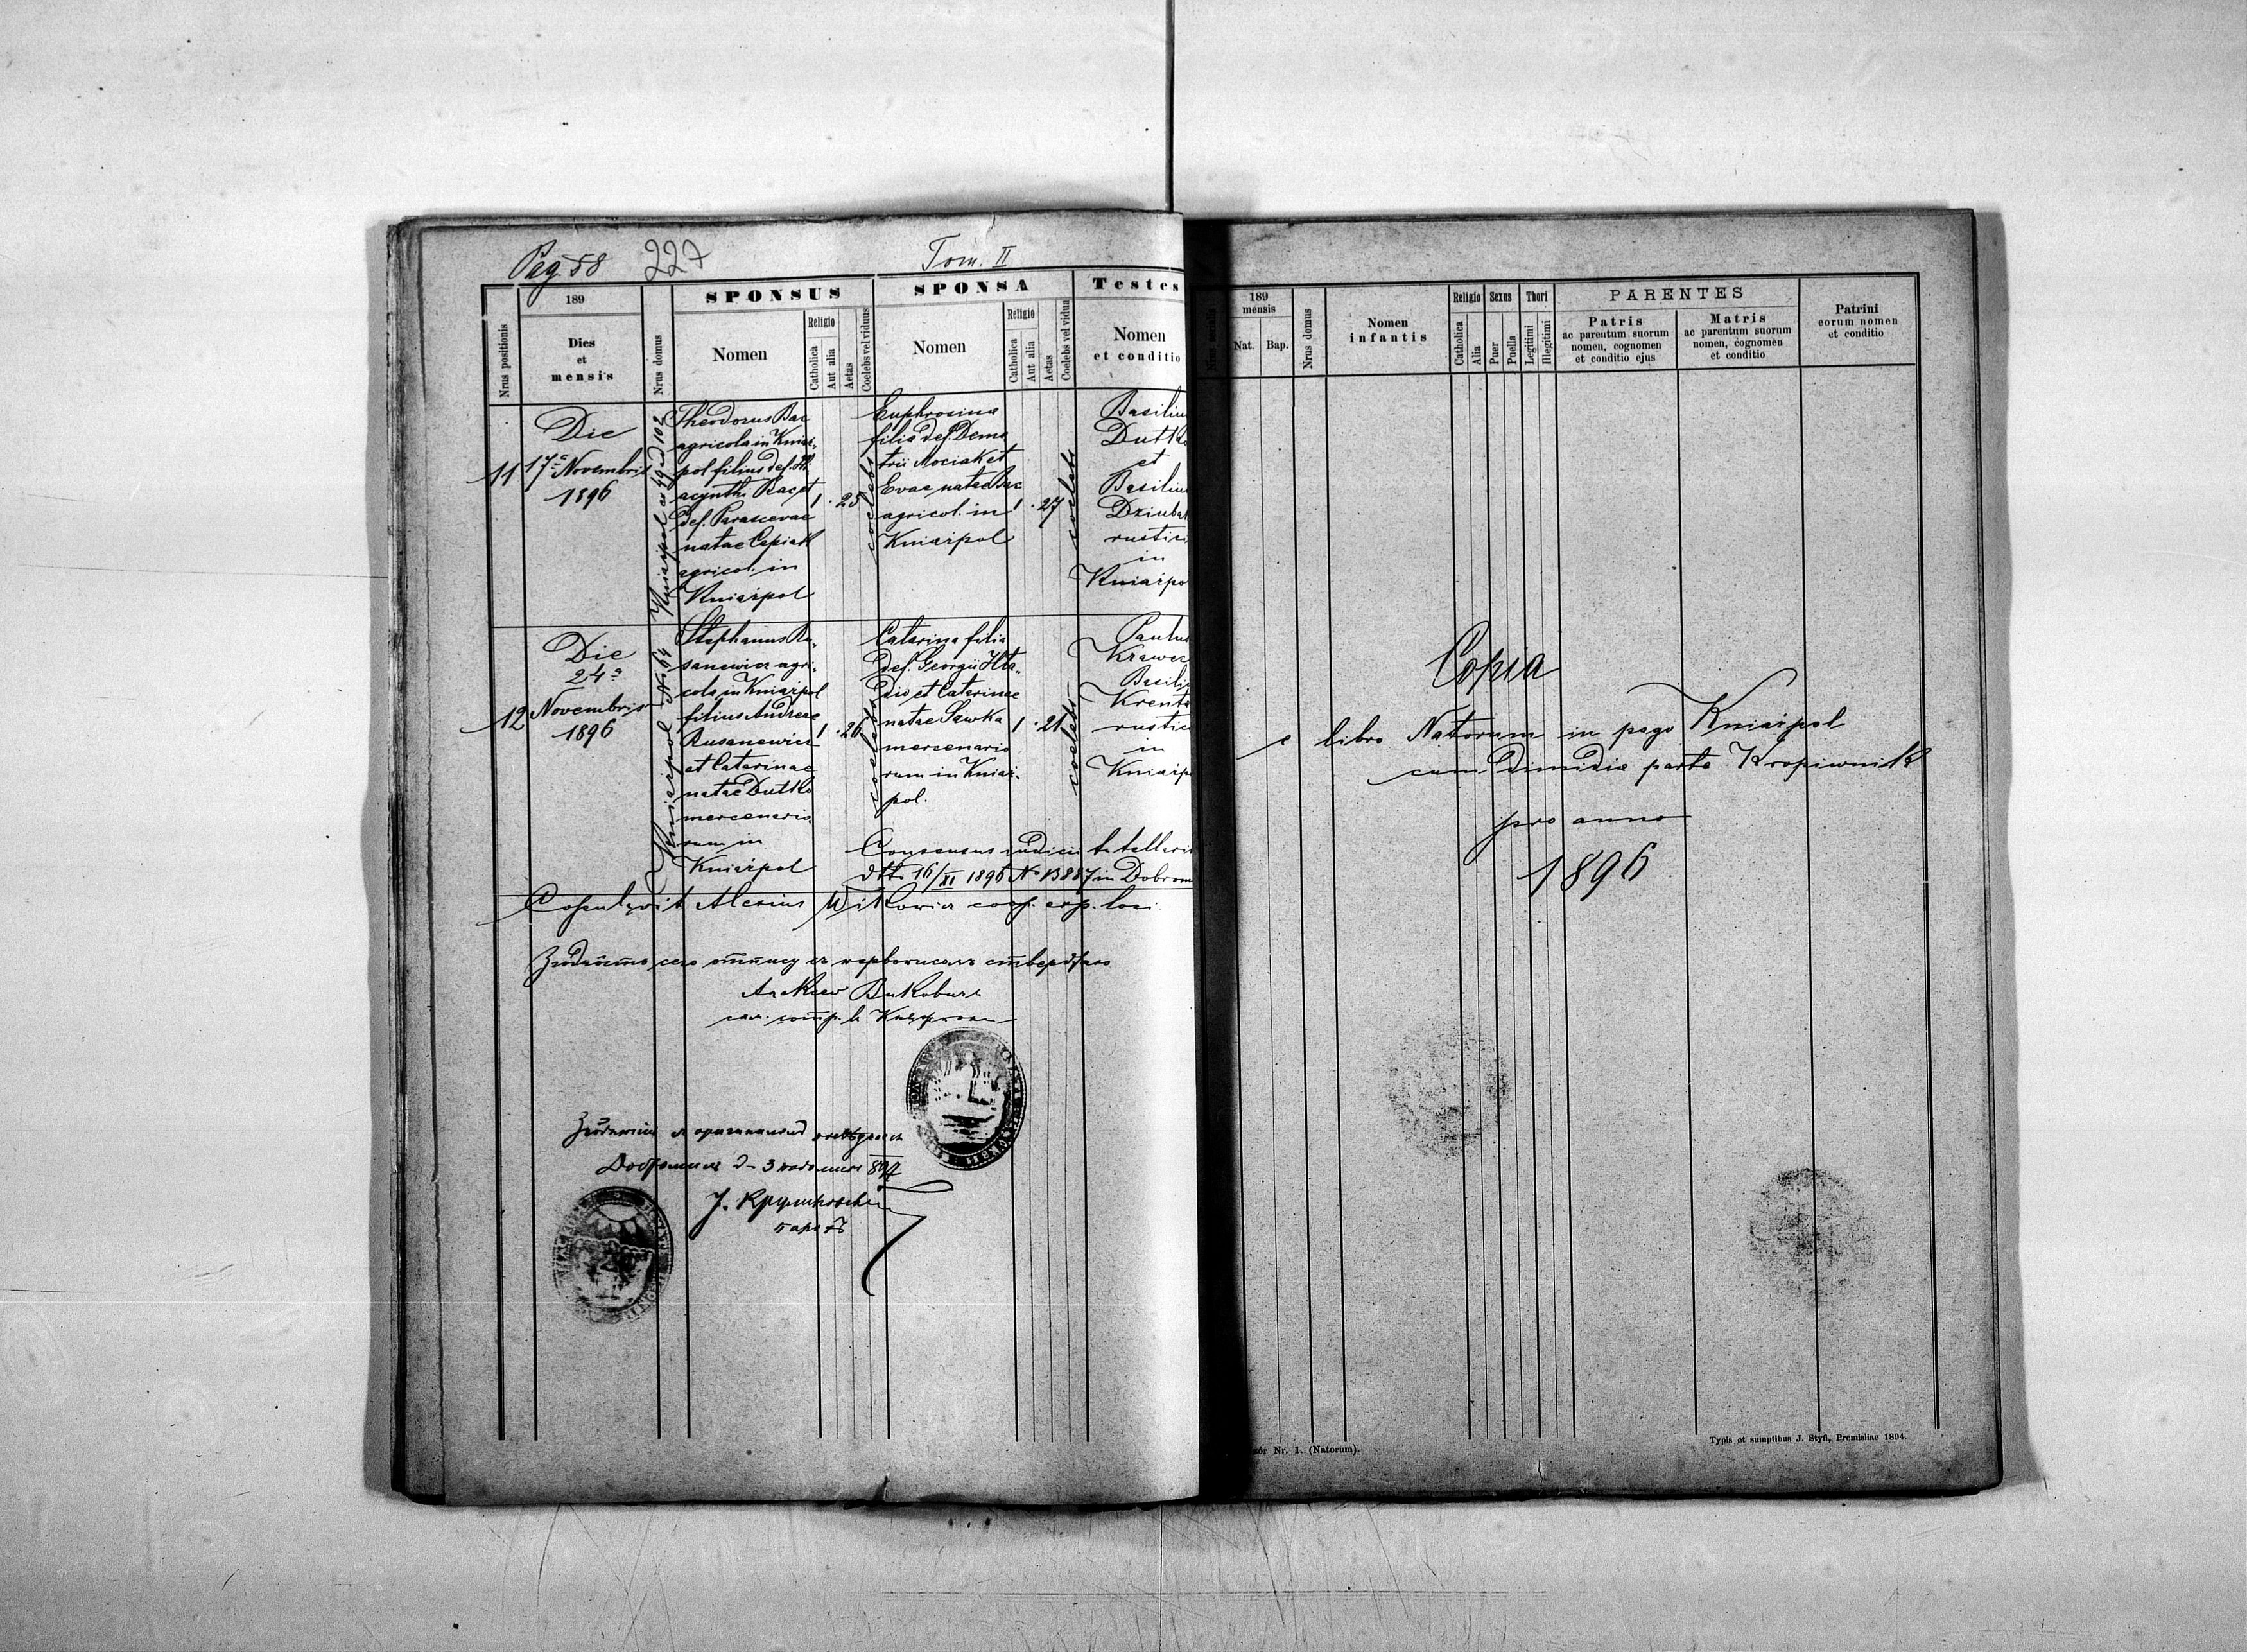 Pag. 58
227
Tom. II
SPONSUS
SPONSA
Testes
Nrus positionis
189
Dies
et
mensis
Nrus domus
Nomen
Religio
Catholica
Aut alia
Aetas
Coelebs vel viduus
Nomen
Religio
Catholica
Aut alia
Aetas
Coelebs vel vidua
Nomen
et conditio
11
Die
17a Novembris
1896
Theodorus Bac
agricola in Kniaż-
pol filius def. Hi
acynthi Bac et
def. Parascevae
natae Capiak
agricol. in
Kniażpol
1
25
coelebs
Euphrosina
filia def. Deme
trii Mociak et
Evae natae Bac
agricol. in
Kniażpol
1
27
coelebs
Basilius
Dutko
et
Basilius
Dziubak
rustici
in
Kniażpol
12
Die
24a
Novembris
1896
Kniażpol No 64
Stephanus Ru-
sanewicz agri-
cola in Kniażpol
filius Andreae
Rusanewicz
et Catarinae
natae Dutko
mercenario
rum in
Kniażpol
1
26
coelebs
Catarina filia
def. Georgii Hła-
dio et Catarinae
natae Sawka
mercenario
rum in Kniaż-
pol.
1
21
coelebs
Paulus
Krawec
Basili
Krenta
rustici
in
Kniażp
Consensus iudicii tutellaris
dtto 16/XI 1896 No 13887 in Dobrom
Copulavit Alexius Wikowicz coop. exp. loci
Алексій Викович
Добромиль
парохъ
Nrus serialis
189
mensis
Nat.
Bap.
Nrus domus
Nomen
infantis
Religio
Catholica
Alia
Sexus
Puer
Puella
Thori
Legitimi
Illegitimi
PARENTES
Patris
ac parentum suorum
nomen, cognomen
et conditio ejus
Matris
ac parentum suorum
nomen, cognomen
et conditio
Patrini
eorum nomen
et conditio
Copia
e libro Natorum in pago Kniażpol
cum dimidia parte Kropiwnik
pro anno
1896
Nr. 1. (Natorum).
Typis et sumptibus J. Styfi, Premisliae 1894.